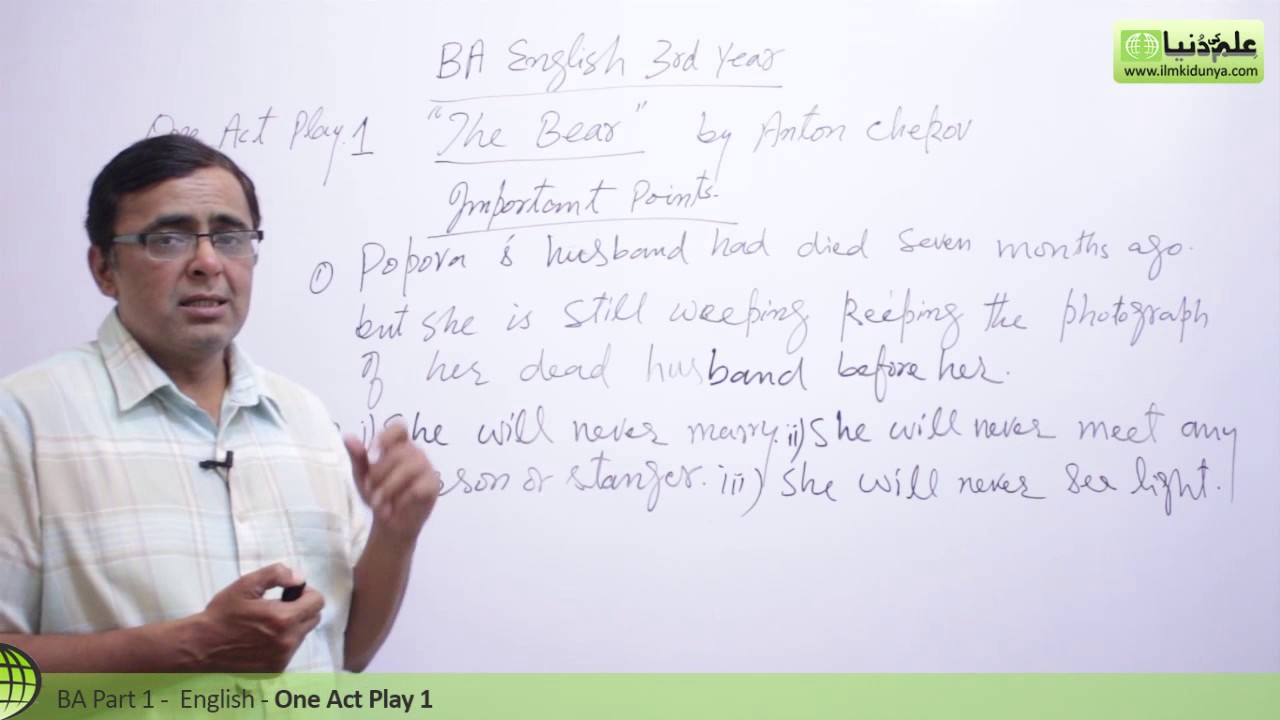 علم کی دنیا
www.ilmkidunya.com
BA English 3rd Year
One Act Play.1 "The Bear" by Anton Chekov
Important Points.
① Popova's husband had died seven months ago.
but she is still weeping keeping the photograph
of her dead husband before her.
i) She will never marry. ii) She will never meet any
erson or stanger. iii) She will never see light.
BA Part 1 - English - One Act Play 1